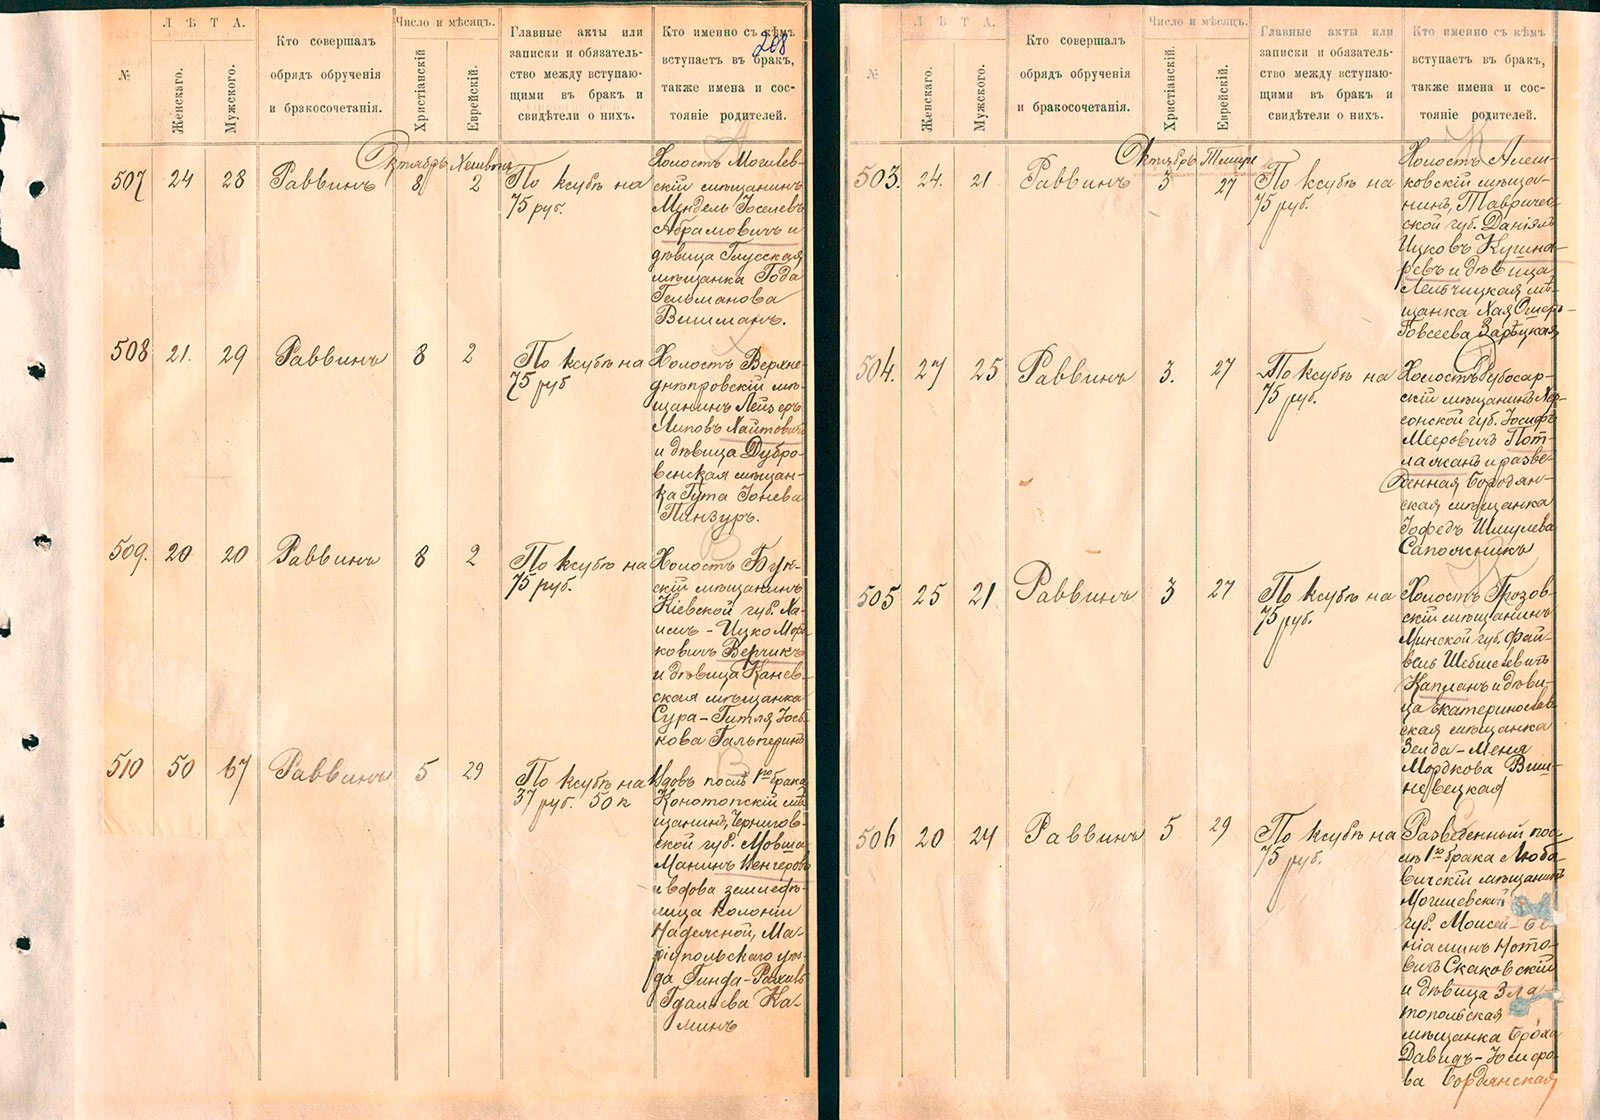 208
№
Л Ѣ Т А.
Женскаго.
Мужского.
Кто совершалъ
обрядъ обрученія
и бракосочетанія.
Число и мѣсяцъ.
Христіанскій
Еврейскій.
Главные акты или
записки и обязатель-
ство между вступаю-
щими въ бракъ и
свидѣтели о нихъ.
Кто именно съ кѣмъ
вступаетъ въ бракъ,
также имена и сос-
тояніе родителей.
Октябрь Хешвонъ
507 24 28 Раввинъ 8 2
По ксубѣ на
75 руб.
Холостъ Могилев-
скій мѣщанинъ
Мендель Іоселевъ
Абрамовичъ и
дѣвица Глусская
мѣщанка Года
Гельманова
Вишманъ.
508 21. 29 Раввинъ 8 2
По ксубѣ на
75 руб
Холостъ Верхне-
днѣпровскій мѣ-
щанинъ Лейзеръ
Липовъ Хаитовичъ
и дѣвица Дубро-
венская мѣщан-
ка Гута Іонева
Пинзуръ.
509. 20 20 Раввинъ 8 2
По ксубѣ на
75 руб.
Холостъ
скій мѣщанинъ
Кіевской губ. Ха-
имъ-Ицко Мор-
ковичъ Верчикъ
и дѣвица Канев-
ская мѣщанка
Сура-Гитля Іось-
кова Гальперинъ
510 50 67 Раввинъ 5 29
По ксубѣ на
37 руб. 50 к
Вдовъ послѣ 1го брака
Конотопскій мѣ-
щанинъ, Чернигов-
ской губ. Мовша
Манинъ Венгеровъ
и вдова земледѣ-
лица колоніи
Надежной, Ма-
ріупольскаго уѣз-
да Гинда-Рахиль
Гдаліева Ка-
минъ
№
Л Ѣ Т А.
Женскаго.
Мужского.
Кто совершалъ
обрядъ обрученія
и бракосочетанія.
Число и мѣсяцъ.
Христіанскій
Еврейскій.
Главные акты или
записки и обязатель-
ство между вступаю-
щими въ бракъ и
свидѣтели о нихъ.
Кто именно съ кѣмъ
вступаетъ въ бракъ,
также имена и сос-
тояніе родителей.
Октябрь Тишри
503. 24. 21 Раввинъ 3 27
По ксубѣ на
75 руб.
Холостъ Алеш-
ковскій мѣща-
нинъ, Тавричес-
ской губ. Даніэль
Ицковъ Кушна-
ревъ и дѣвица
Лельчицкая мѣ-
щанка Хая Ошер-
Говсеева Зарѣцкая
504. 27 25 Раввинъ 3. 27
По ксубѣ на
75 руб.
Холостъ Дубосар-
скій мѣщанинъ Хер-
сонской губ. Іосифъ
Мееровичъ Пот-
лажанъ и разве-
денная Бородян-
ская мѣщанка
Іофедъ Шмулева
Сапожникъ
505 25 21 Раввинъ 3 27
По ксубѣ на
75 руб.
Холостъ Грозов-
скій мѣщанинъ
Минской губ. Фай-
вель Шебшелевичъ
Капланъ и дѣви-
ца Екатеринослав-
ская мѣщанка
Зелда-Меня
Мордкова Виш-
невецкая
506 20 24 Раввинъ 5 29
По ксубѣ на
75 руб.
Разведенный пос-
лѣ 1го брака Люба-
вичскій мѣщанинъ
Могилевской
губ. Моисей-Бе-
ніаминъ Ното-
вичъ Скаковскій
и дѣвица Зла-
топольская
мѣщанка Броха
Давидъ-Іосифо-
ва Бордянская